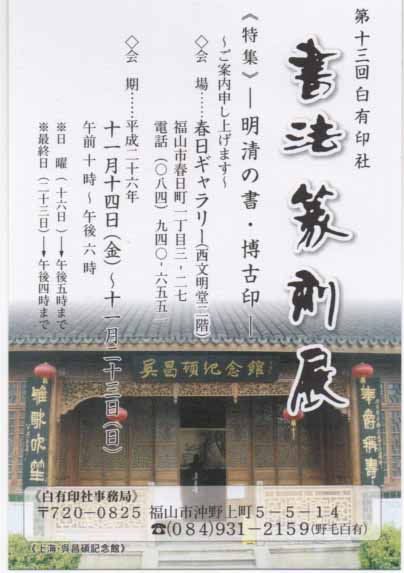 第十三回 白有印社
書法篆刻展
《特集》―明清の書・博古印―
～ご案内申し上げます～
◇会　場……春日ギャラリー(西文明堂二階)
福山市春日町一丁目三-二七
電話（〇八四）九四〇-六五五一
◇会　期……平成二十六年
十一月十四日（金）～十一月二十三日（日）
午前 十 時～ 午後 六 時
※日　曜（十六日）→午後五時まで
※最終日（二十三日）→午後四時まで
吳昌碩紀念館
《白有印社事務局》
〒720-0825 福山市沖野上町５－５－１４
☎(084)931-2159(野毛白有)
《上海・呉昌碩記念館》